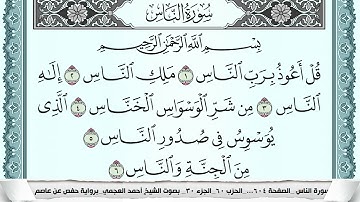 سُورَةُ النَّاسِ
بِسْمِ اللَّهِ الرَّحْمَٰنِ الرَّحِيمِ
قُلْ أَعُوذُ بِرَبِّ النَّاسِ ١ مَلِكِ النَّاسِ ٢ إِلَٰهِ
النَّاسِ ٣ مِن شَرِّ الْوَسْوَاسِ الْخَنَّاسِ ٤ الَّذِي
يُوَسْوِسُ فِي صُدُورِ النَّاسِ ٥
مِنَ الْجِنَّةِ وَالنَّاسِ ٦
سورة الناس _الصفحة ٦٠٤... الحزب ٦٠_الجزء ٣٠_ بصوت الشيخ أحمد العجمي_برواية حفص عن عاصم